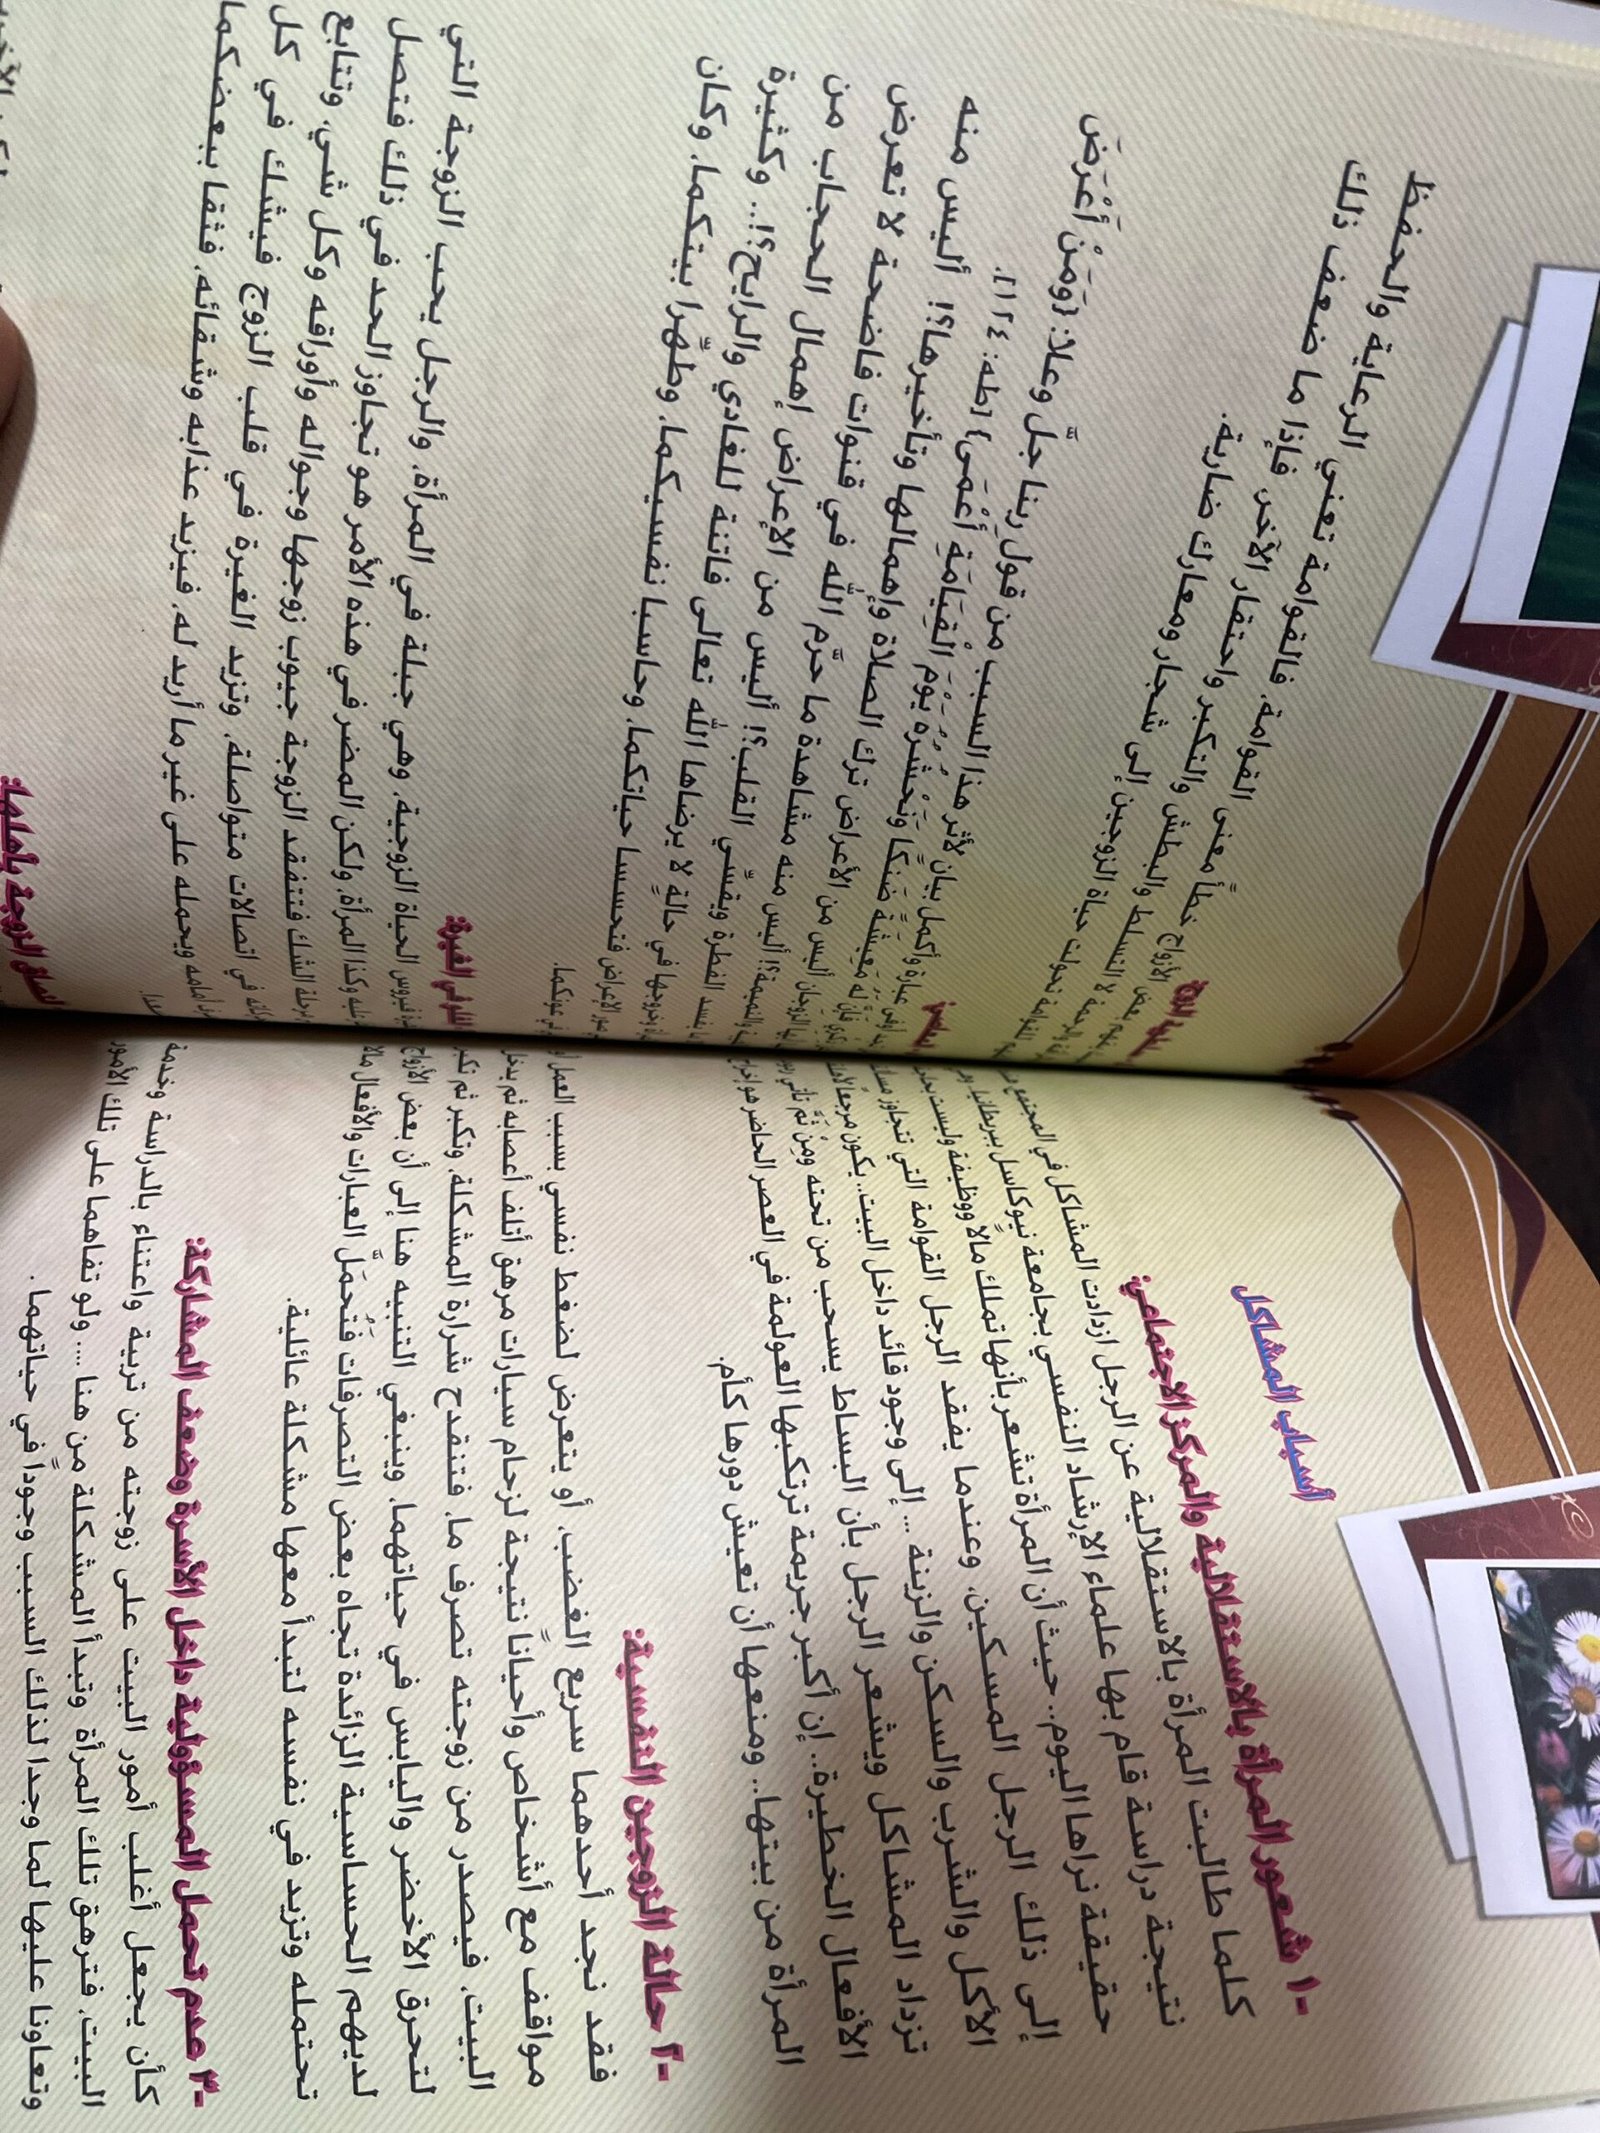 أسباب المشاكل
١- شعور المرأة بالاستقلالية والمركز الاجتماعي:
كلما طالبت المرأة بالاستقلالية عن الرجل ازدادت المشاكل في المجتمع
نتيجة دراسة قام بها علماء الإرشاد النفسي بجامعة نيوكاسل ببريطانيا
حقيقة نراها اليوم.. حيث أن المرأة تشعر بأنها تملك مالاً ووظيفة وليست بحاجة
إلى ذلك الرجل المسكين، وعندما يفقد الرجل القوامة التي تتجاوز
الأكل والشرب والسكن والزينة ... إلى وجود قائد داخل البيت.. يكون مرجعاً
تزداد المشاكل ويشعر الرجل بأن البساط يسحب من تحته ومن ثَمَّ تأتي
الأفعال الخطيرة.. إن أكبر جريمة ترتكبها العولمة في العصر الحاضر هو إخراج
المرأة من بيتها.. ومنعها أن تعيش دورها كأم.
٢- حالة الزوجين النفسية:
فقد نجد أحدهما سريع الغضب، أو يتعرض لضغط نفسي بسبب العمل أو
مواقف مع أشخاص وأحيانا نتيجة لزحام سيارات مرهق أتلف أعصابه ثم يدخل
البيت، فيصدر من زوجته تصرف ما، فتنقدح شرارة المشكلة، وتكبر ثم تكبر
لتحرق الأخضر واليابس في حياتهما، وينبغي التنبيه هنا إلى أن بعض الأزواج
لديهم الحساسية الزائدة تجاه بعض التصرفات فَتُحمَّل العبارات والأفعال مالا
تحتمله وتزيد في نفسه لتبدأ معها مشكلة عائلية.
٣- عدم تحمل المسؤولية داخل الأسرة وضعف المشاركة:
كأن يجعل أغلب أمور البيت على زوجته من تربية واعتناء بالدراسة وخدمة
البيت، فترهق تلك المرأة وتبدأ المشكلة من هنا .... ولو تفاهما على تلك الأمور
وتعاونا عليها لما وجدا لذلك السبب وجوداً في حياتهما.
الأزواج خطأً معنى القوامة، فالقوامة تعني الرعاية والحفظ
لا التسلط والبطش والتكبر واحتقار الآخر، فإذا ما ضعف ذلك
تحولت حياة الزوجين إلى شجار ومعارك ضارية.
عبارة وأكمل بيان لأثر هذا السبب من قول ربنا جلَّ وعلا: {وَمَنْ أَعْرَضَ
فَإِنَّ لَهُ مَعِيشَةً ضَنكًا وَنَحْشُرُهُ يَوْمَ الْقِيَامَةِ أَعْمَى} [طه: ١٢٤].
الزوجان أليس من الأعراض ترك الصلاة وإهمالها وتأخيرها؟! أليس منه
والنميمة؟! أليس منه مشاهدة ما حرَّم الله في قنوات فاضحة لا تعرض
ما يفسد الفطرة ويقسِّي القلب؟! أليس من الإعراض إهمال الحجاب من
وخروجها في حالةٍ لا يرضاها الله تعالى فاتنة للغادي والرايح؟!.. وكثيرة
صور الإعراض فتحسسا حياتكما، وحاسبا نفسيكما، وطهِّرا بيتكما، وكان
في عونكما.
الغلو في الغيرة:
الحياة الزوجية، وهي جبلة في المرأة، والرجل يحب الزوجة التي
عليه وكذا المرأة، ولكن المضر في هذه الأمر هو تجاوز الحد في ذلك فتصل
مرحلة الشك فتتفقد الزوجة جيوب زوجها وجواله وأوراقه وكل شي، وتتابع
في اتصالات متواصلة، وتزيد الغيرة في قلب الزوج فيشك في كل
أمامه ويحمله على غير ما أريد له، فيزيد عذابه وشقائه، فثقا ببعضكما
الزوجة بأهلها: